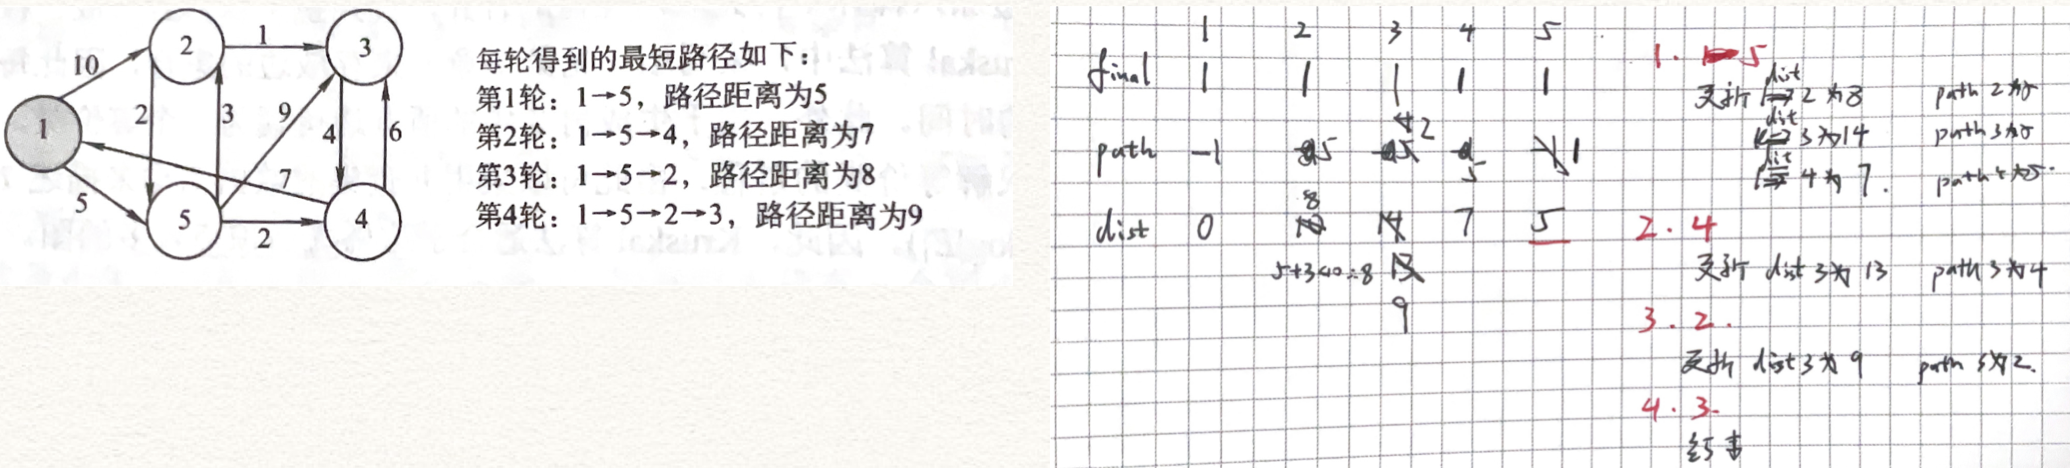 10
1
2
3
9
4
6
7
5
2
1
2
3
4
5
每轮得到的最短路径如下：
第1轮：1→5，路径距离为5
第2轮：1→5→4，路径距离为7
第3轮：1→5→2，路径距离为8
第4轮：1→5→2→3，路径距离为9
1 2 3 4 5
final 1 1 1 1 1
path -1 5 2 5 1
dist 0 8 9 7 5
5+3<10=8
1. 5
更新 dist 2为8 path 2为5
dist 3为14 path 3为5
dist 4为7. path 4为5.
2. 4
更新 dist 3为13 path 3为4
3. 2.
更新 dist 3为9 path 3为2.
4. 3.
结束